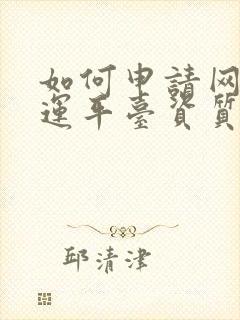 如何申請网
運平臺资質
邱清津